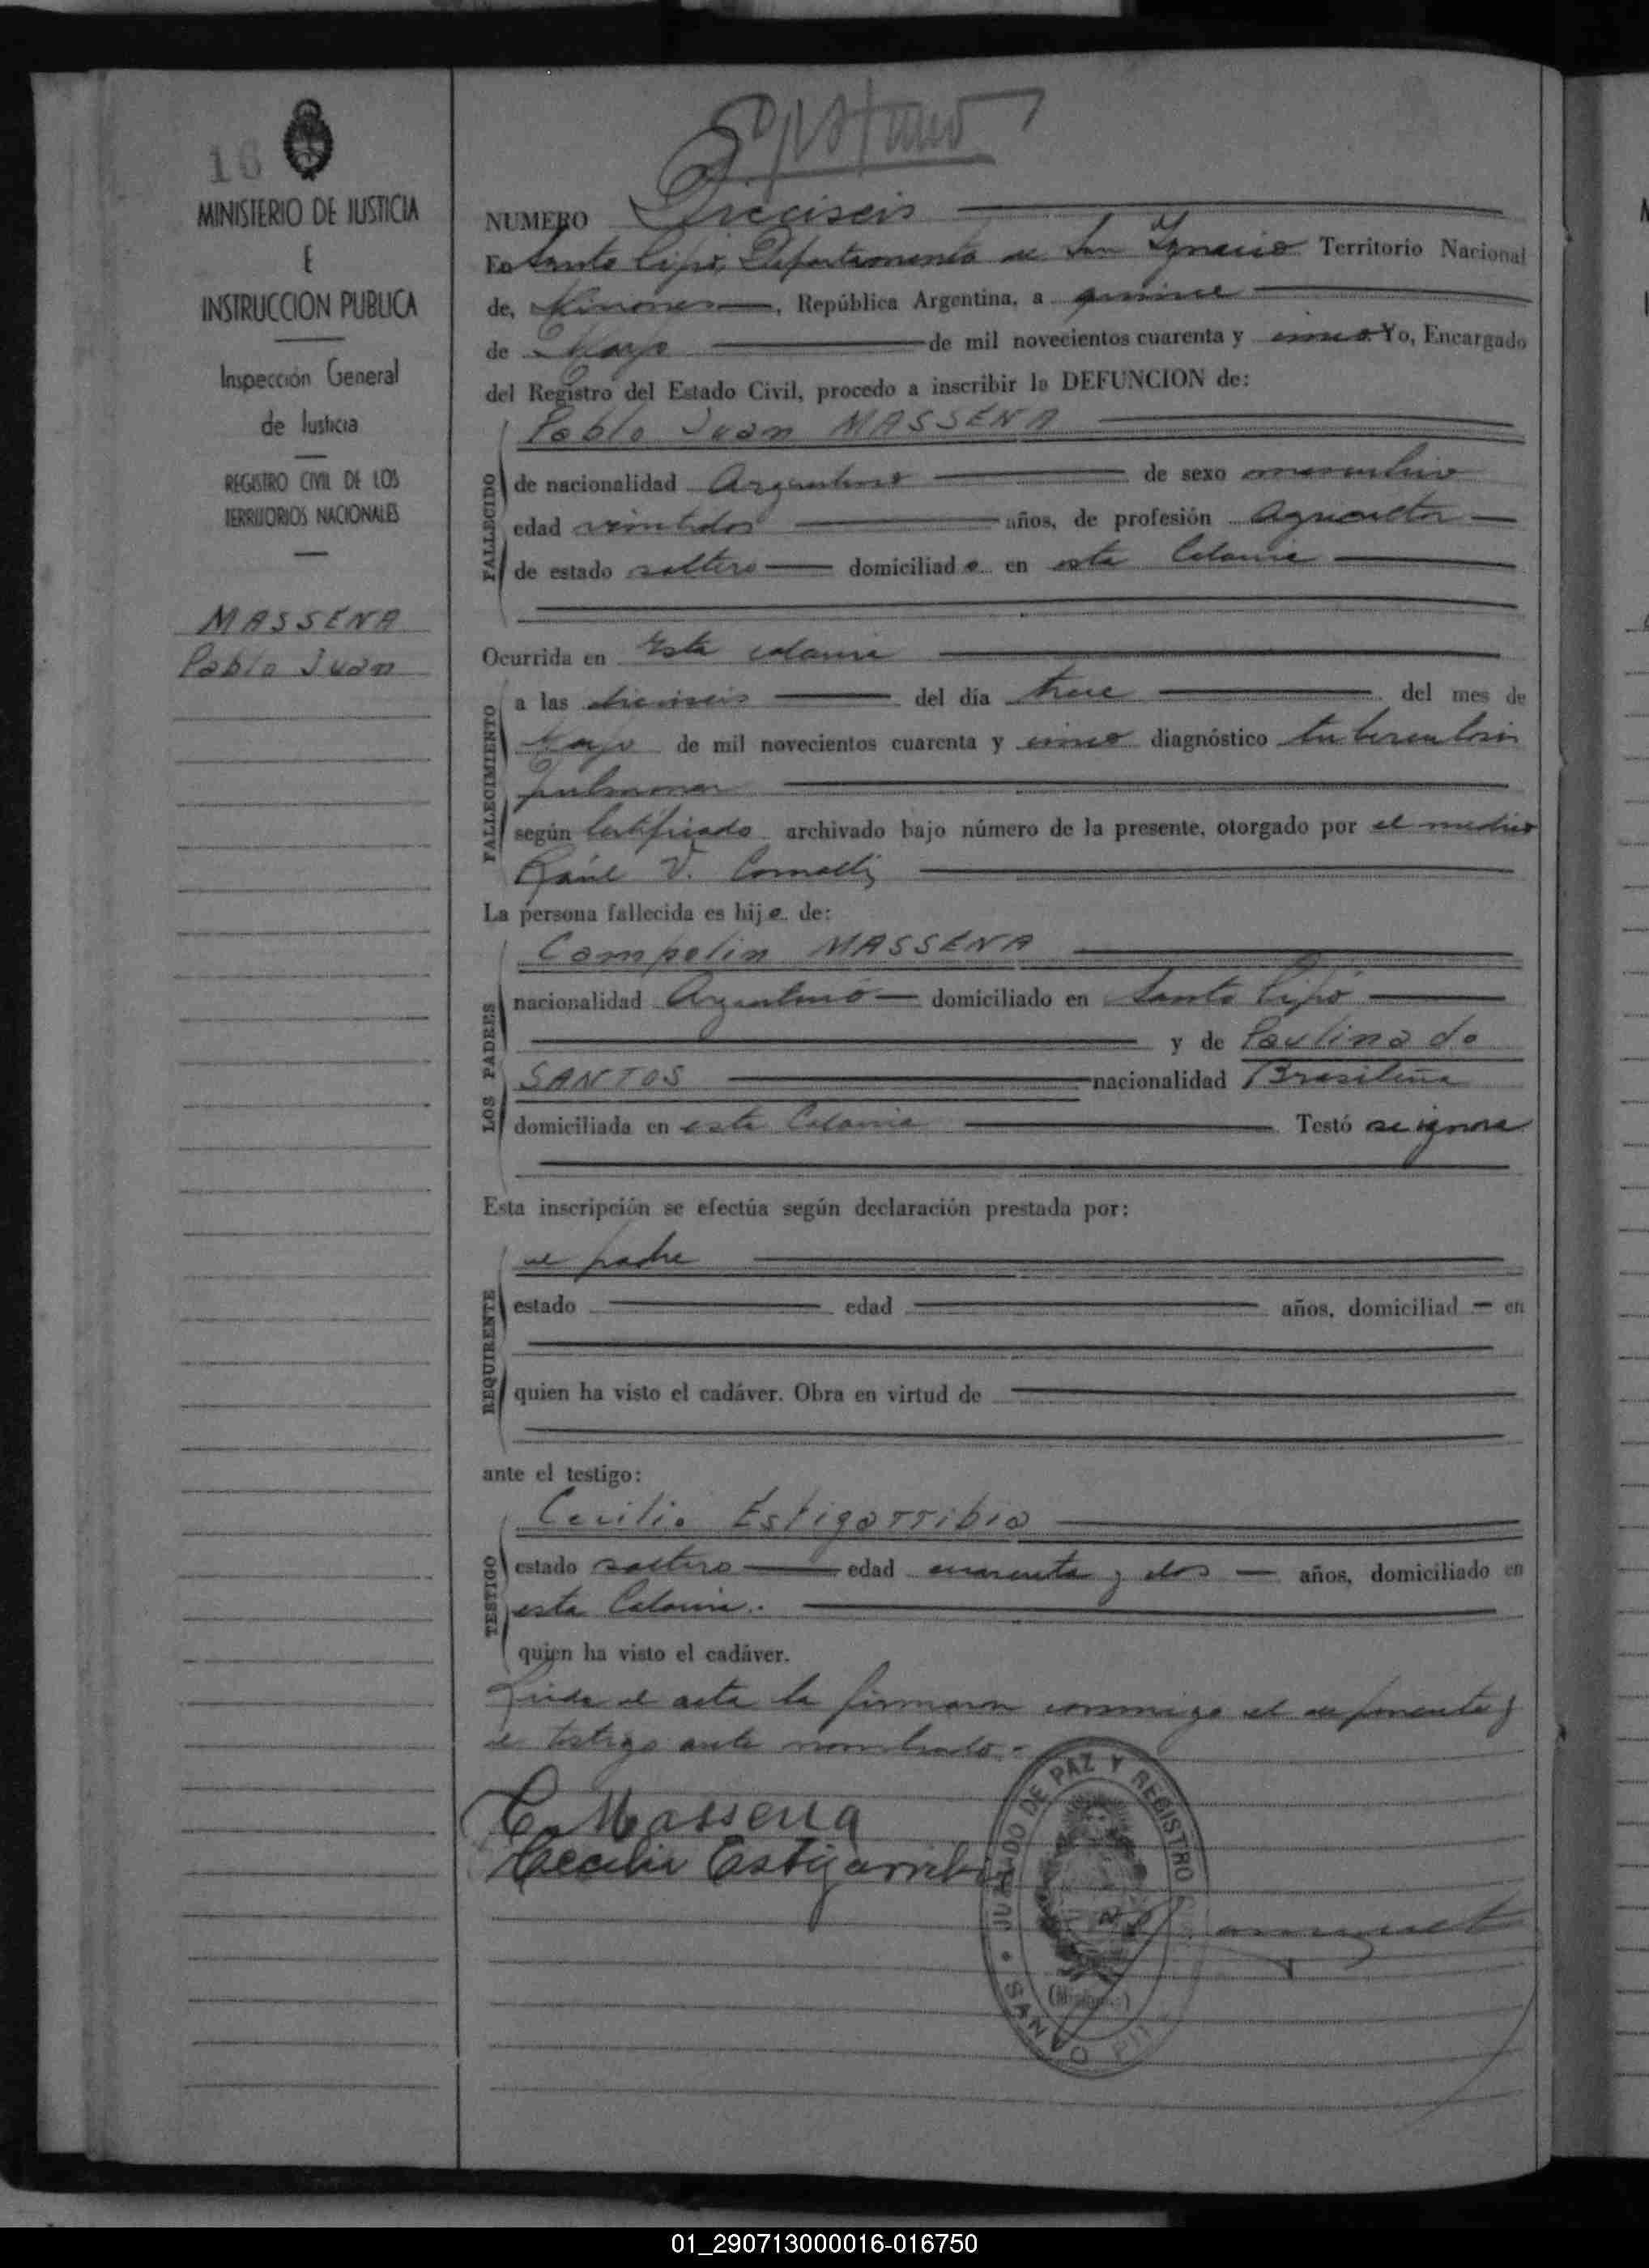 16
MINISTERIO DE JUSTICIA
E
INSTRUCCION PUBLICA
Inspección General
de Justicia
REGISTRO CIVIL DE LOS
TERRITORIOS NACIONALES
MASSENA
Pablo Juan
NUMERO Dieciseis
En Santo Pipó, Departamento de San Ygnacio Territorio Nacional
de, Misiones, República Argentina, a quince
de Mayo de mil novecientos cuarenta y cinco Yo, Encargado
del Registro del Estado Civil, procedo a inscribir la DEFUNCION de:
Pablo Juan MASSENA
FALLECIDO
de nacionalidad Argentino de sexo masculino
edad veintidos años, de profesión agricultor
de estado soltero domiciliado en esta Colonia
Ocurrida en Esta colonia
FALLECIMIENTO
a las dieciseis del día trece del mes de
Mayo de mil novecientos cuarenta y cinco diagnóstico tuberculosis
pulmonar
según Certificado archivado bajo número de la presente, otorgado por el medico
Raúl V.
La persona fallecida es hijo de:
Campolin MASSENA
LOS PADRES
nacionalidad Argentino domiciliado en Santo Pipó
y de Paulina do
SANTOS nacionalidad Brasileña
domiciliada en esta Colonia Testó se ignora
Esta inscripción se efectúa según declaración prestada por:
el padre
REQUIRENTE
estado edad años, domiciliad en
quien ha visto el cadáver. Obra en virtud de
ante el testigo:
Cecilio Estigarribia
TESTIGO
estado soltero edad cuarenta y dos años, domiciliado en
esta Colonia.
quien ha visto el cadáver.
Leida el acta la firmaron conmigo el exponente y
el testigo ante nombrado.-
C. Massena
Cecilio Estigarribia
JUZGADO DE PAZ Y REGISTRO
SANTO PIPÓ
(Misiones)
01_290713000016-016750